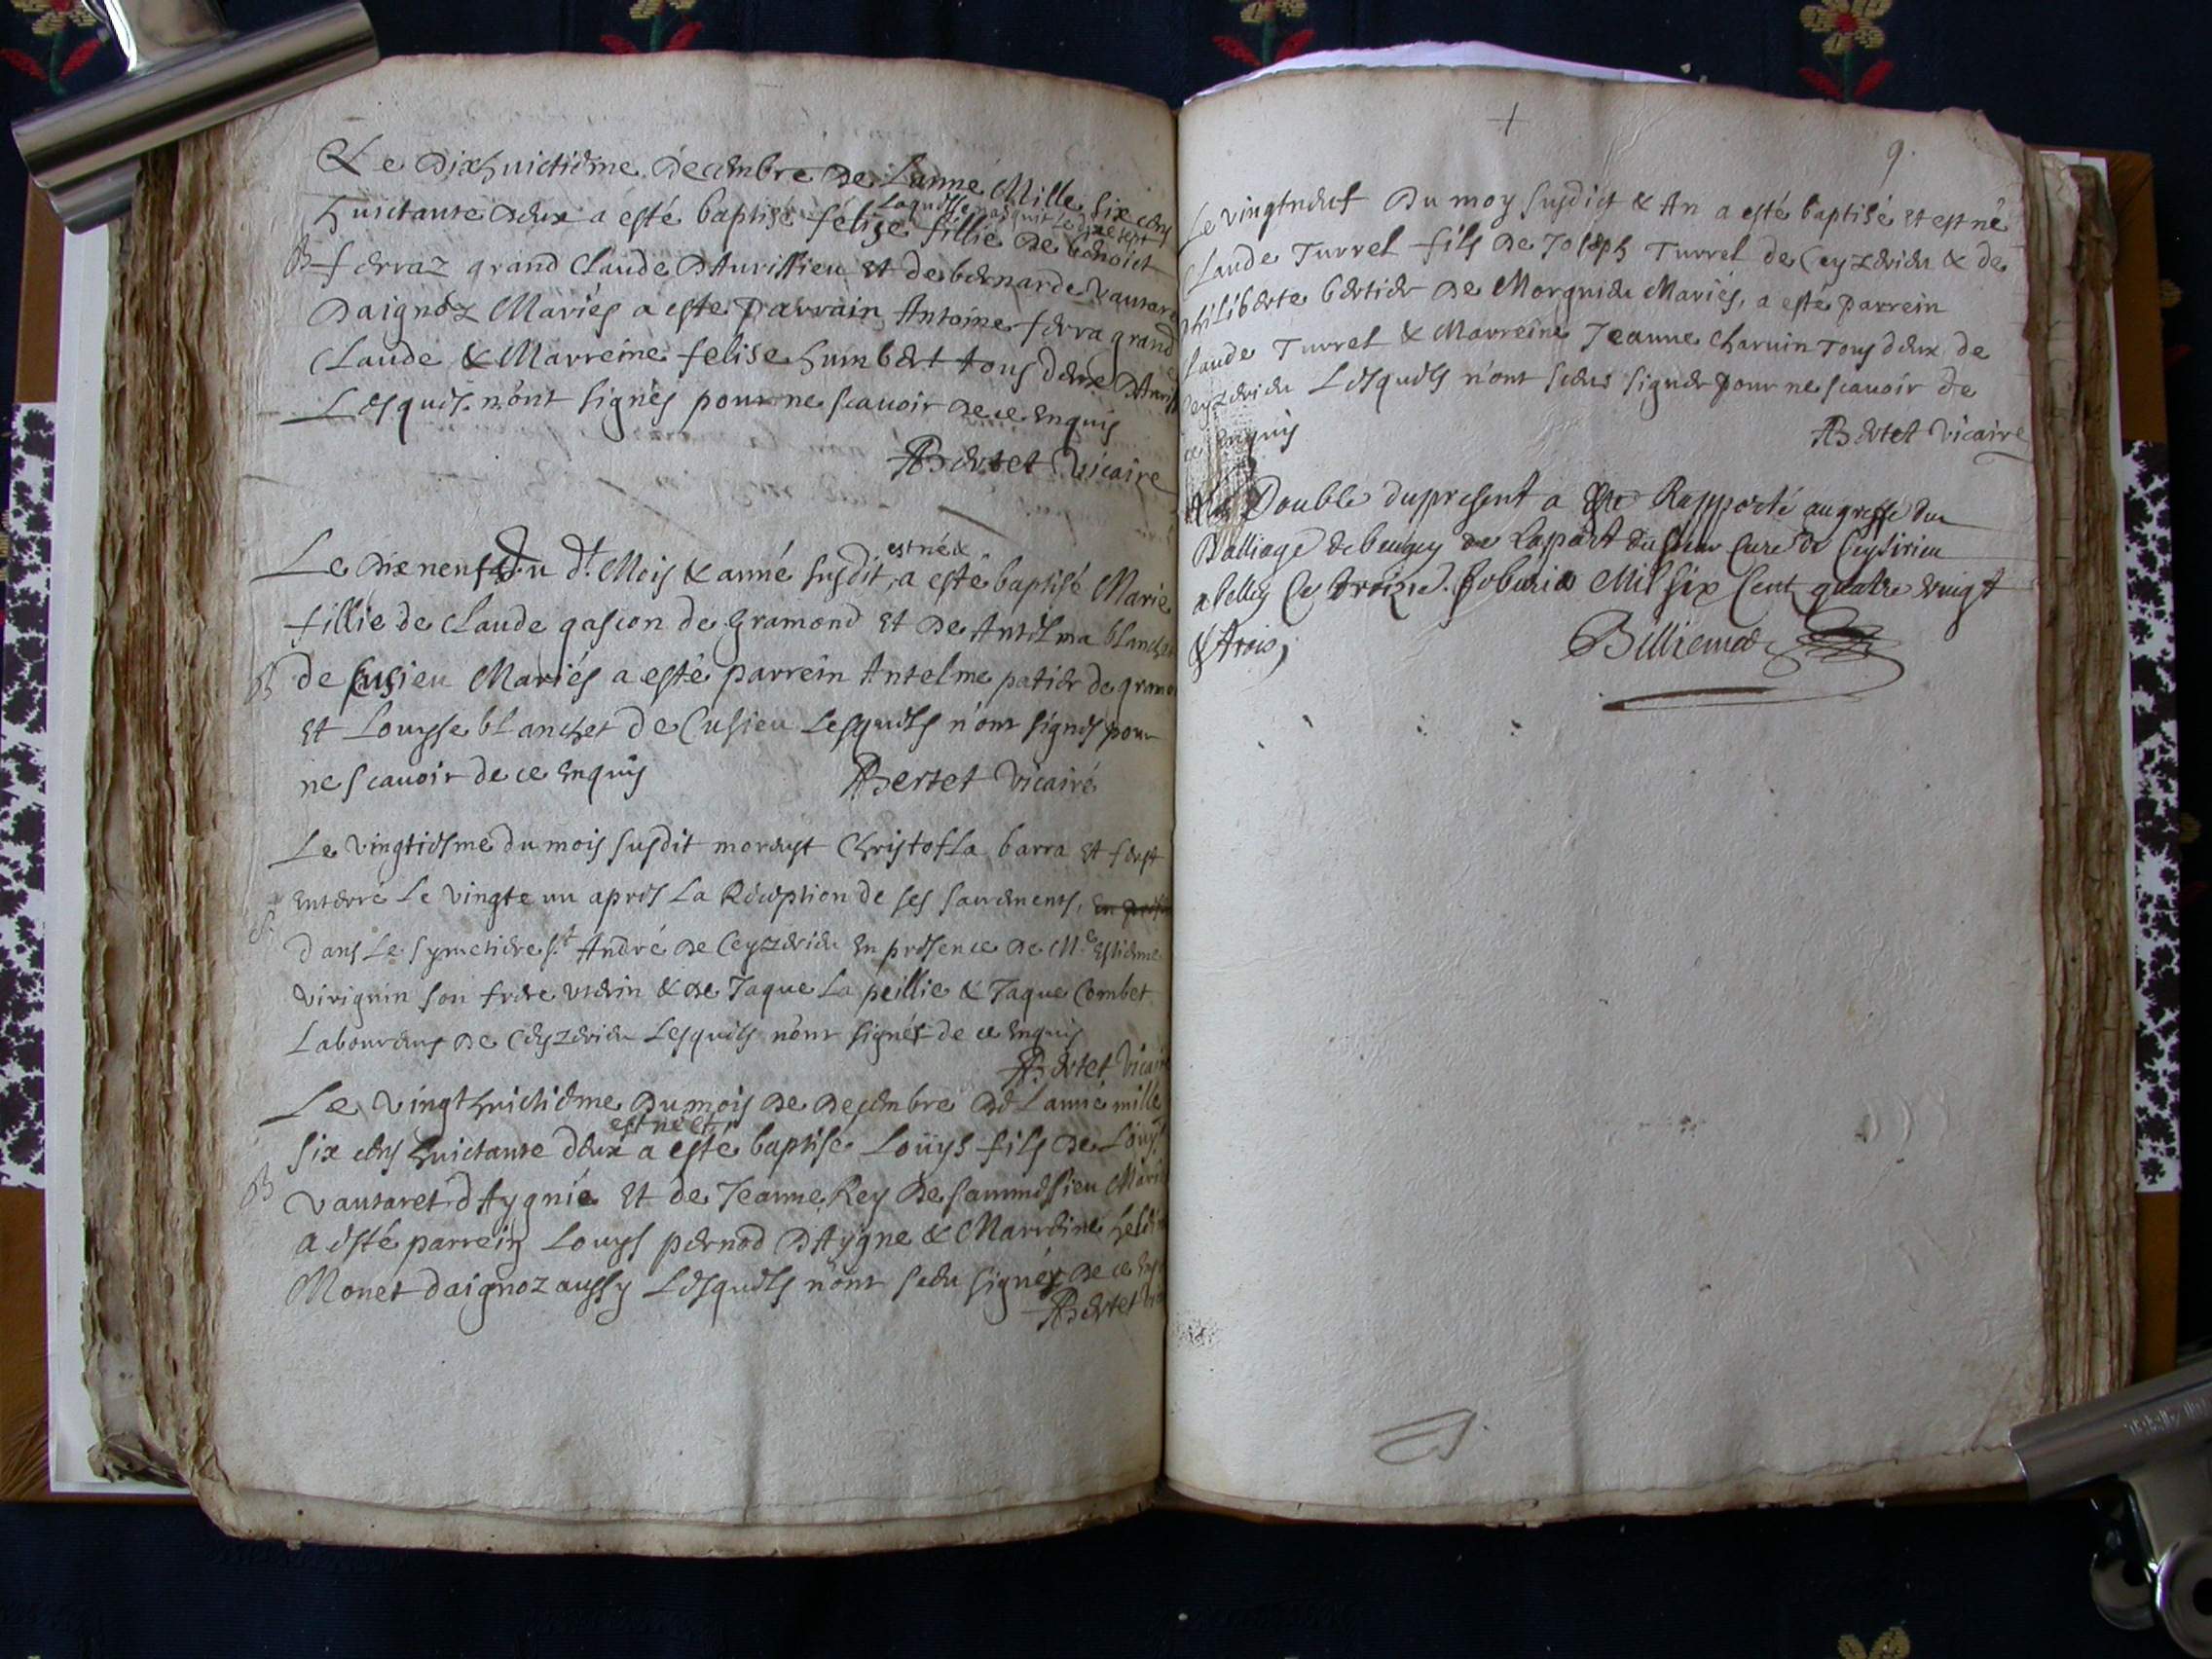 Le dixhuictieme decembre de Lanne Mille six cens
Laquelle nasquit le dixsept
huictante deux a esté baptisé félise fillie de benoict
B ferraz grand Claude d'Aurissieu et de bernarde vautaret
Daignoz Mariés a esté parrain Antoine ferra grand
Claude & Marreine felise humbert tous deux
Lesquels n'ont signés pour ne scavoir de ce enquis
ABertet Vicaire
est née &
Le dixneuf du dt. Mois & anné susdit, a esté baptisé Marie
fillie de Claude gascon de Gramond et de Antelma blanchet
B de Cusieu Mariés a esté parrein Antelme patier de
et Louysse blanchet de Cusieu Lesquels n'ont signés pour
ne scavoir de ce enquis ABertet Vicaire
Le vingtiesme du mois susdit moreust Christofla barra et feust
enterré le vingte un apres La Réception de ses sacrements,
S. dans Le symetiere St André de Ceyzerieu en présence de Me Estienne
virignin son frere uterin & de Jaque La peillie & Jaque Combet
Laboureurs de Ceyzerieu Lesquels n'ont signés de ce enquis
ABertet Vicaire
Le vingthuictieme du mois de decembre de Lanné mille
est né et
six cens huictante deux a esté baptisé Loüys fils de Louys
B vautaret d'Aygnie et de Jeanne Rey de
a esté parrein Louys pernod d'Aygne & Marreine
Monet daignoz aussy Lesquels n'ont sceu signés de ce
ABertet
+
9.
Le vingtneuf du moy susdict & An a esté baptisé et est né
Claude Turrel fils de Joseph Turrel de Ceyzerieu & de
philiberte bertier de Morgnieu Mariés, a esté parrein
Claude Turrel & Marreine Jeanne Charuin tous deux de
Ceyzerieu Lesquels n'ont sceus signer pour ne scavoir de
ce enquis
ABertet Vicaire
Double du present a este Rapporté au greffe du
Balliage de beugey de la part du sieur Curé de Ceyserieu
a belley ce treize. feburier Mil six Cent quatre vingt
& trois;
Billiemaz